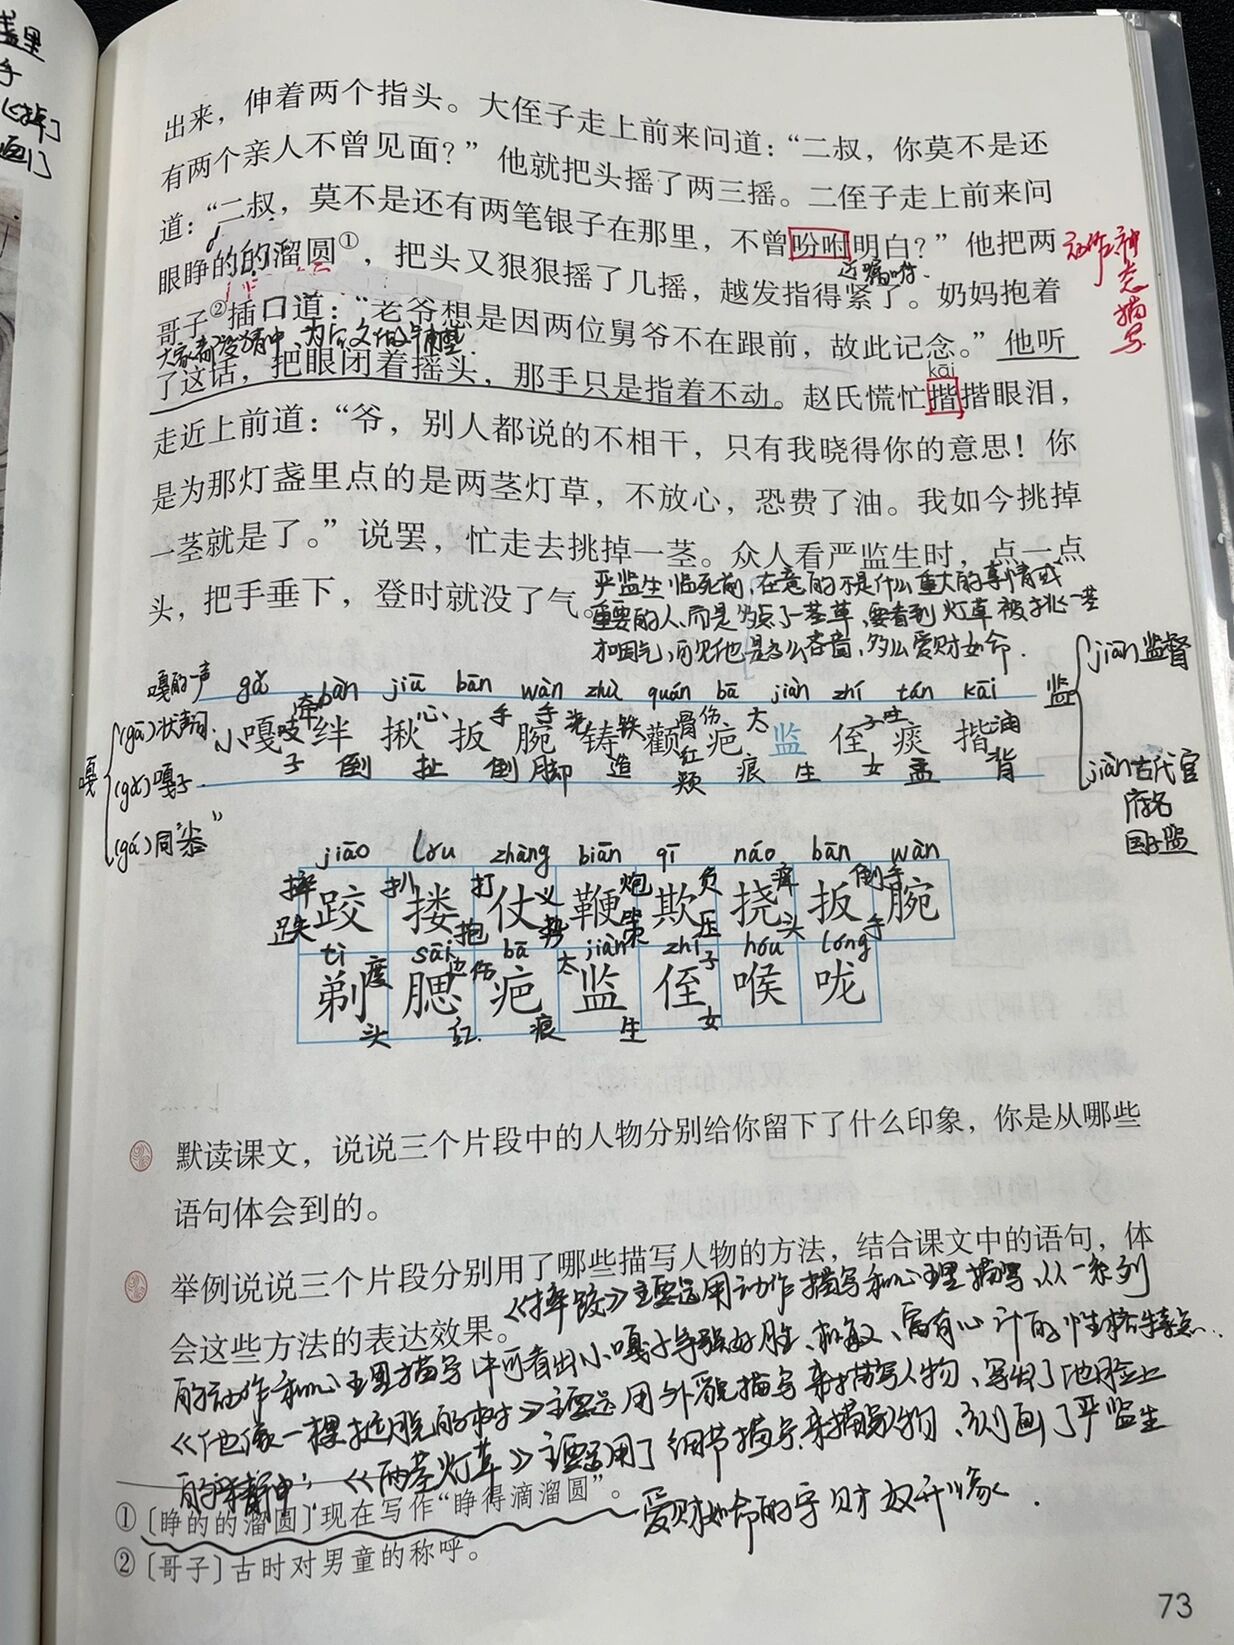 盏里
手
出来，伸着两个指头。大侄子走上前来问道：“二叔，你莫不是还
有两个亲人不曾见面？”他就把头摇了两三摇。二侄子走上前来问
道：“二叔，莫不是还有两笔银子在那里，不曾吩咐明白？”他把两
动作神态描写
眼睁的的溜圆①，把头又狠狠摇了几摇，越发指得紧了。奶妈抱着
近嘱咐.
哥子②插口道：“老爷想是因两位舅爷不在跟前，故此记念。”他听
大家都没猜中、为后文作铺垫.
kāi
了这话，把眼闭着摇头，那手只是指着不动。赵氏慌忙揩揩眼泪，
走近上前道：“爷，别人都说的不相干，只有我晓得你的意思！你
是为那灯盏里点的是两茎灯草，不放心，恐费了油。我如今挑掉
一茎就是了。”说罢，忙走去挑掉一茎。众人看严监生时，点一点
头，把手垂下，登时就没了气。
严监生临死前、在意的不是什么重大的事情或
重要的人、而是多点了一茎草、要看到灯草被挑一茎
才咽气、可见他是多么吝啬、多么爱财如命.
嘎
嘎的一声
(gā)状声词
(gǎ)嘎子
(gá)同“尜”
gǎ bàn jiū bān wàn zhù quán bā jiàn zhí tán kāi
牵 心 手 手 浇 铁 骨 伤 太 子 吐 油
小嘎吱绊揪扳腕铸颧疤监侄痰揩
子 倒 扯 倒 脚 造 红 颊 痕 生 女 盂 背
监
jiān监督
jiàn古代官
府名
国子监
jiāo lǒu zhàng biān qī náo bān wàn
摔 扒 打 义 炮 负 痒 倒 手
跤搂仗鞭欺挠扳腕
跌 抱 势 策 压 头 手
tì sāi bā jiàn zhí hóu lóng
度 边 伤 太 子
剃腮疤监侄喉咙
头 红 痕 生 女
默读课文，说说三个片段中的人物分别给你留下了什么印象，你是从哪些
语句体会到的。
举例说说三个片段分别用了哪些描写人物的方法，结合课文中的语句，体
会这些方法的表达效果。
《摔跤》主要运用动作描写和心理描写、从一系列
的动作和心理描写中可看出小嘎子争强好胜、机敏、富有心计的性格特点.
《他像一棵挺脱的树》主要运用外貌描写来描写人物、写出了他脸上
《两茎灯草》主要运用了细节描写来描写人物、刻画了严监生
爱财如命的守财奴形象.
①〔睁的的溜圆〕现在写作“睁得滴溜圆”。
②〔哥子〕古时对男童的称呼。
73